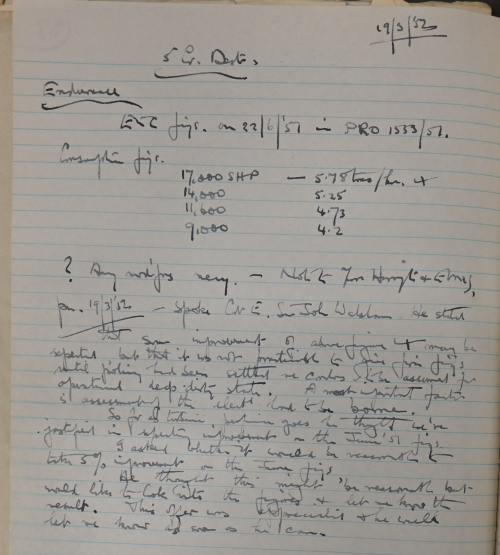 19/3/'52
5 Cr. Dest.
Endurance
figs. on 22/6/'51 in PRO 1533/51.
Consumption figs.
17,000 SHP — 5.78 tons/hr. x
14,000 5.25
11,600 4.73
9,000 4.2
? Any
19/3/52 — Spoke Sir John He stated
that some improvement on above figure x may be
expected but that it was not practicable to give firm figs,
until had been settled re to be assumed for
operational deep dirty state. A most important factor
is assessment of the elect. load to be borne.
So far as turbine goes he thought we're
justified in expecting improvement on the June '51 figs.
I asked whether it would be reasonable to
take 5% improvement on the June figs
He thought this might be reasonable but
would like to look into the figures & let me know the
result. This offer was appreciated & he will
let me know as soon as he can.